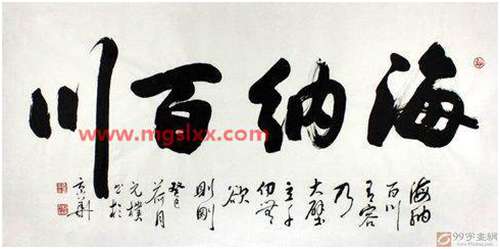 海纳百川
www.mgslxx.com
海纳
百川
有容
乃
大壁
立千
仞無
欲
則剛
癸巳
荷月
元樸
书於
京華
99字画网